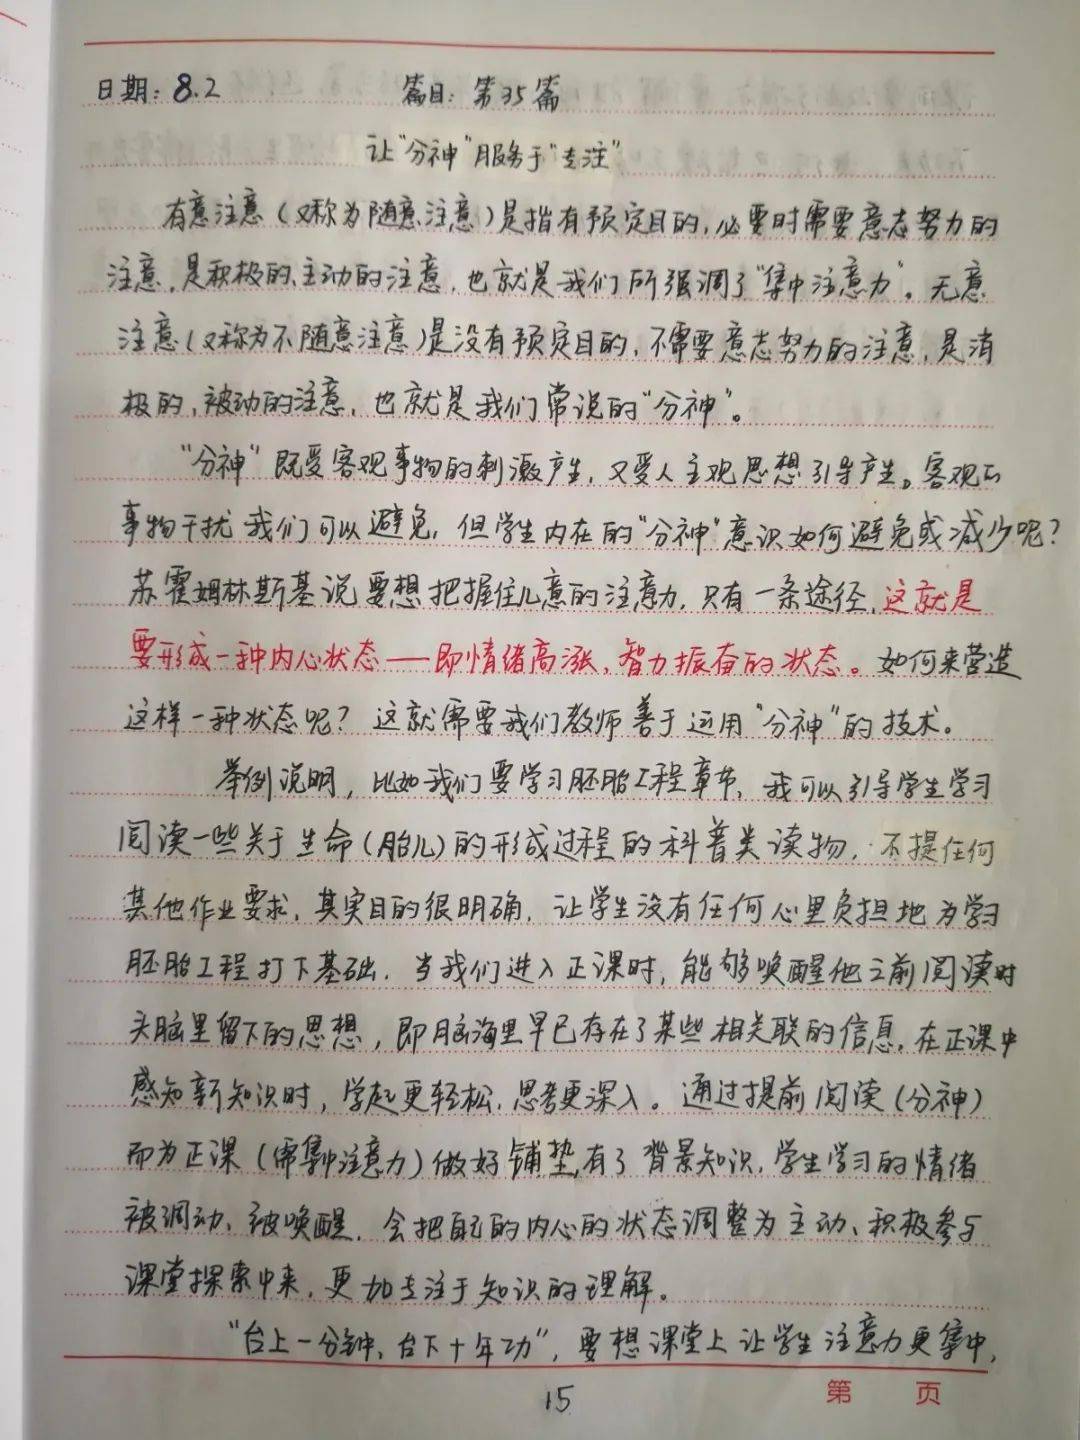 日期：8.2 篇目：第35篇
让“分神”服务于“专注”
有意注意（又称为随意注意）是指有预定目的，必要时需要意志努力的
注意，是积极的、主动的注意，也就是我们所强调了“集中注意力”。无意
注意（又称为不随意注意）是没有预定目的，不需要意志努力的注意，是消
极的，被动的注意，也就是我们常说的“分神”。
“分神”既受客观事物的刺激产生，又受人主观思想引导产生。客观的
事物干扰我们可以避免，但学生内在的“分神”意识如何避免或减少呢？
苏霍姆林斯基说要想把握住儿意的注意力，只有一条途径，这就是
要形成一种内心状态——即情绪高涨，智力振奋的状态。如何来营造
这样一种状态呢？这就需要我们教师善于运用“分神”的技术。
举例说明，比如我们要学习胚胎工程章节，我可以引导学生学习
阅读一些关于生命（胎儿）的形成过程的科普类读物，不提任何
其他作业要求，其实目的很明确，让学生没有任何心里负担地为学习
胚胎工程打下基础，当我们进入正课时，能够唤醒他之前阅读时
头脑里留下的思想，即脑海里早已存在了某些相关联的信息，在正课中
感知新知识时，学起更轻松，思考更深入。通过提前阅读（分神）
而为正课（需集中注意力）做好铺垫，有了背景知识，学生学习的情绪
被调动、被唤醒，会把自己的内心的状态调整为主动、积极参与
课堂探索中来，更加专注于知识的理解。
“台上一分钟，台下十年功”，要想课堂上让学生注意力更集中，
15 第 页